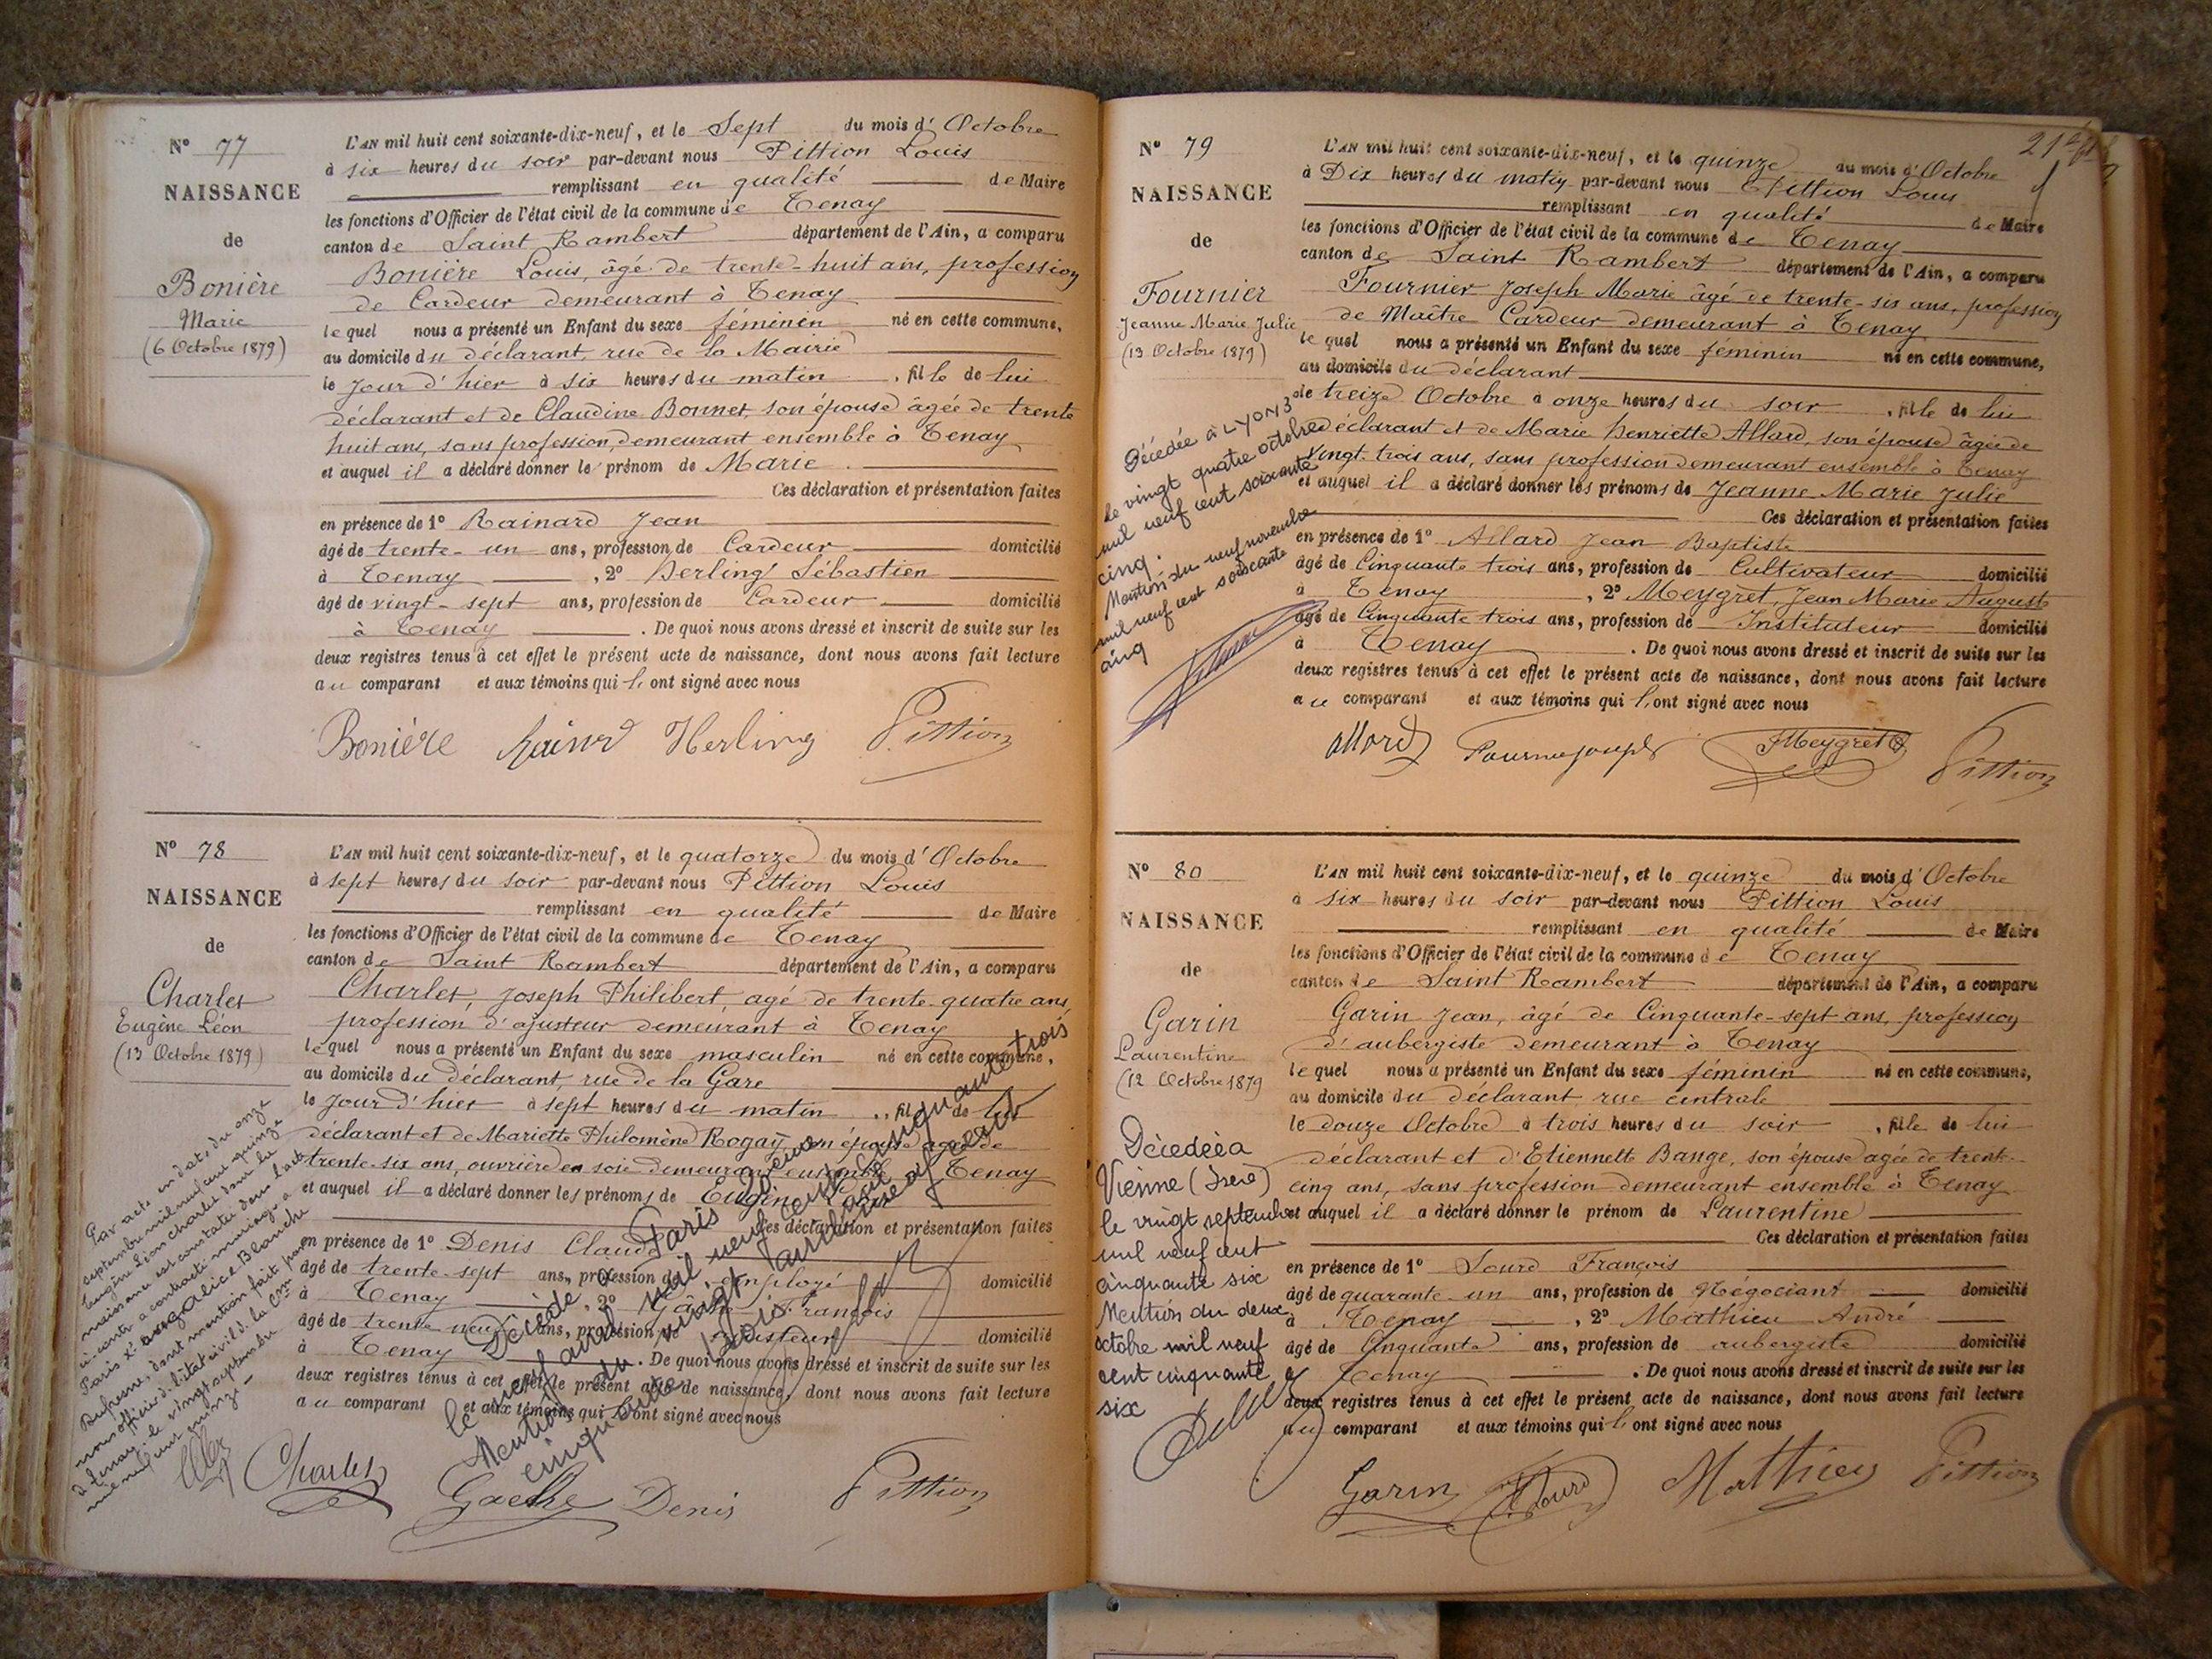 N° 77
NAISSANCE
de
Bonière
Marie
(6 Octobre 1879)
L'AN mil huit cent soixante-dix-neuf, et le Sept du mois d'Octobre
à six heures du soir par-devant nous Pittion Louis
remplissant en qualité de Maire
les fonctions d'Officier de l'état civil de la commune de Tenay
canton de Saint Rambert département de l'Ain, a comparu
Bonière Louis, âgé de trente-huit ans, profession
de Cardeur demeurant à Tenay
lequel nous a présenté un Enfant du sexe féminin né en cette commune,
au domicile du déclarant, rue de la Mairie
le jour d'hier à six heures du matin, fille de lui
déclarant et de Claudine Bonnet, son épouse âgée de trente
huit ans, sans profession, demeurant ensemble à Tenay
et auquel il a déclaré donner le prénom de Marie.
Ces déclaration et présentation faites
en présence de 1° Rainard Jean
âgé de trente-un ans, profession de Cardeur domicilié
à Tenay, 2° Herling Sébastien
âgé de vingt-sept ans, profession de Cardeur domicilié
à Tenay. De quoi nous avons dressé et inscrit de suite sur les
deux registres tenus à cet effet le présent acte de naissance, dont nous avons fait lecture
au comparant et aux témoins qui l'ont signé avec nous
Bonière Rainard Herling Pittion
N° 78
NAISSANCE
de
Charlet
Eugène Léon
(13 Octobre 1879)
L'AN mil huit cent soixante-dix-neuf, et le quatorze du mois d'Octobre
à sept heures du soir par-devant nous Pittion Louis
remplissant en qualité de Maire
les fonctions d'Officier de l'état civil de la commune de Tenay
canton de Saint Rambert département de l'Ain, a comparu
Charlet, Joseph Philibert, âgé de trente-quatre ans,
profession d'ajusteur demeurant à Tenay
lequel nous a présenté un Enfant du sexe masculin né en cette commune,
au domicile du déclarant, rue de la Gare
le jour d'hier à sept heures du matin, fils de lui
déclarant et de Mariette Philomène Rogay, son épouse agée de
trente-six ans, ouvrière en soie demeurant ensemble à Tenay
et auquel il a déclaré donner les prénoms de Eugène Léon
Ces déclaration et présentation faites
en présence de 1° Denis Claude
âgé de trente-sept ans, profession d'employé domicilié
à Tenay, 2° François
âgé de trente neuf ans, profession de ajusteur domicilié
à Tenay. De quoi nous avons dressé et inscrit de suite sur les
deux registres tenus à cet effet le présent acte de naissance, dont nous avons fait lecture
au comparant et aux témoins qui l'ont signé avec nous
Par acte en date du onze
septembre mil neuf cent quinze
Eugène Léon Charlet dont la
naissance est constatée dans l'acte
ci-contre a contracté mariage à
Paris Xe avec Alice Blanche
Dufresne, dont mention fait par
nous officier de l'état civil de la Cne
de Tenay le vingt septembre
mil neuf cent quinze
Décédé à Paris
le neuf avril mil neuf cent cinquante trois
Mention du vingt avril mil neuf cent
cinquante trois
Charlet Denis Pittion
21
N° 79
NAISSANCE
de
Fournier
Jeanne Marie Julie
(13 Octobre 1879)
L'AN mil huit cent soixante-dix-neuf, et le quinze du mois d'Octobre
à Dix heures du matin par-devant nous Pittion Louis
remplissant en qualité de Maire
les fonctions d'Officier de l'état civil de la commune de Tenay
canton de Saint Rambert département de l'Ain, a comparu
Fournier Joseph Marie âgé de trente-six ans, profession
de Maître Cardeur demeurant à Tenay
lequel nous a présenté un Enfant du sexe féminin né en cette commune,
au domicile du déclarant
le treize Octobre à onze heures du soir, fille de lui
déclarant et de Marie Henriette Allard, son épouse âgée de
vingt-trois ans, sans profession demeurant ensemble à Tenay
et auquel il a déclaré donner les prénoms de Jeanne Marie Julie
Ces déclaration et présentation faites
en présence de 1° Allard Jean Baptiste
âgé de Cinquante trois ans, profession de Cultivateur domicilié
à Tenay, 2° Meygret, Jean Marie Auguste
âgé de Cinquante trois ans, profession de Instituteur domicilié
à Tenay. De quoi nous avons dressé et inscrit de suite sur les
deux registres tenus à cet effet le présent acte de naissance, dont nous avons fait lecture
au comparant et aux témoins qui l'ont signé avec nous
Décédée à LYON 3e
le vingt quatre octobre
mil neuf cent soixante
cinq.
Mention du neuf novembre
mil neuf cent soixante
cinq
Allard Meygret Pittion
N° 80
NAISSANCE
de
Garin
Laurentine
(12 Octobre 1879
L'AN mil huit cent soixante-dix-neuf, et le quinze du mois d'Octobre
à six heures du soir par-devant nous Pittion Louis
remplissant en qualité de Maire
les fonctions d'Officier de l'état civil de la commune de Tenay
canton de Saint Rambert département de l'Ain, a comparu
Garin Jean, âgé de Cinquante-sept ans, profession
d'aubergiste demeurant à Tenay
lequel nous a présenté un Enfant du sexe féminin né en cette commune,
au domicile du déclarant rue centrale
le douze Octobre à trois heures du soir, fille de lui
déclarant et d'Etiennette Bange, son épouse agée de trente-
cinq ans, sans profession demeurant ensemble à Tenay
et auquel il a déclaré donner le prénom de Laurentine
Ces déclaration et présentation faites
en présence de 1° Sourd François
âgé de quarante-un ans, profession de Négociant
à Tenay, 2° Mathieu André
âgé de Cinquante ans, profession de aubergiste domicilié
à Tenay. De quoi nous avons dressé et inscrit de suite sur les
deux registres tenus à cet effet le présent acte de naissance, dont nous avons fait lecture
au comparant et aux témoins qui l'ont signé avec nous
Décédée à
Vienne (Isère)
le vingt septembre
mil neuf cent
cinquante six
Mention du deux
octobre mil neuf
cent cinquante
six
Garin Sourd Mathieu Pittion